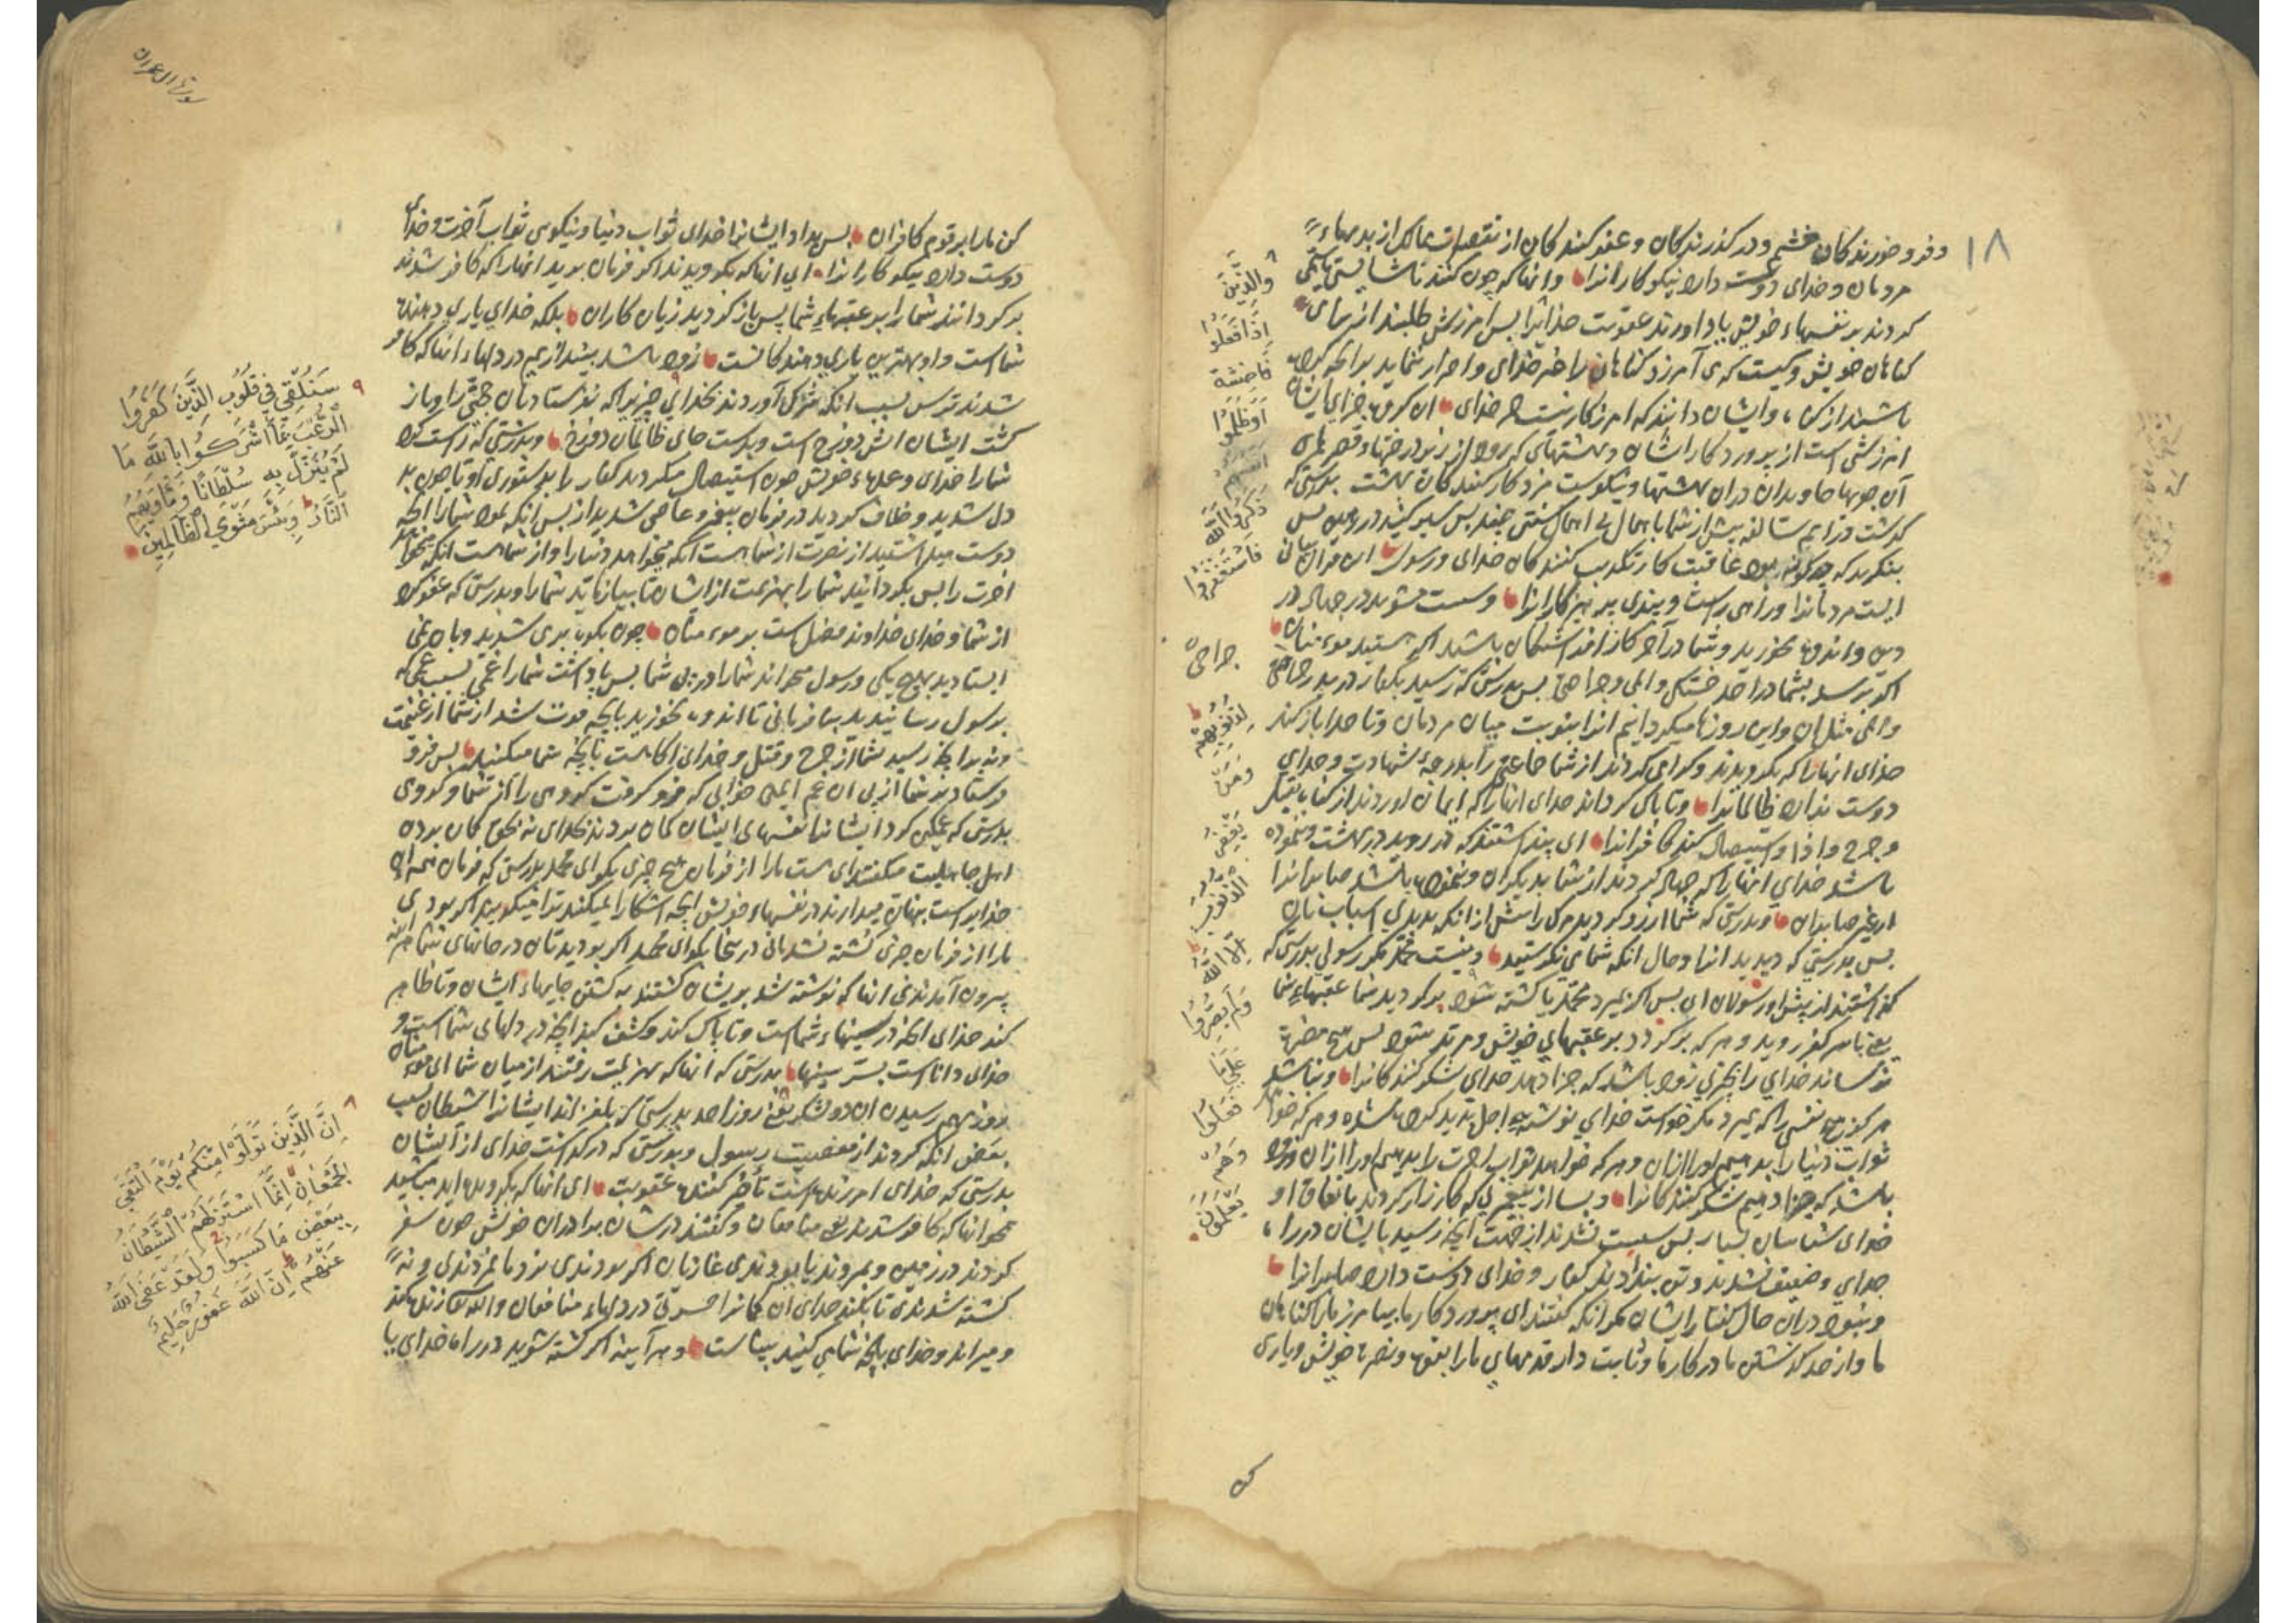 ۱۸
وفرو خورندکان خشم و درکذرندکان و عفو کنندکان از تقصیرات ممالک از بدیهاء
مردمان و خدای دوست دارد نیکوکارانرا وانها که چون کنند ناشایستی یا ستمی
کردند بر نفسهاء خویش یاد اورند عقوبت خدایرا بس امرزش طلبند از برای
کناهان خویش و کیست که می آمرزد کناهان را جز خدای و اصرار ننماید برانچه کرده
باشند از کناه وایشان دانند که امرزکار نیست جز خدای ان کروه جزای ایشان
امرزشی است از پروردکار ایشان و بهشتهای که رود از زیر درختها و قصرهای
آن جویها جاویدان دران بهشتها و نیکوست مزد کار کنندکان بهشت بدرستی که
کذشت در ایم سالفه بیش از شما با اهمال بی اهمال سنتی چند بس سیر کنید در زمین بس
بنکرید که چه کونه بود عاقبت کار تکذیب کنندکان خدای و رسول این قران بیانی
ایست مردمانرا و راهی راست و پندی پرهیزکارانرا وسست مشوید در جهاد در
دین واندوه مخورید و شما در آخر کار افراشتکان باشید اکر هستید مومنان
اکر برسد بشما در احد خستکی والمی و جراحی بس بدرستی که رسید بکفار در بدر جراحی
والمی مثل ان واین روزها میکردانیم انرا بنوبت میان مردمان وتا جدا باز کند
خدای انهارا که بکرویدند و کرای کرداند از شما جماعتی را بدرجۀ شهادت و خدای
دوست ندارد ظالمانرا وتا پاک کرداند خدای انهارا که ایمان اوردند از کناه بقتل
و جرح واذا و استیصال کند کافرانرا ای پنداشتند که در روید در بهشت و ننموده
باشد خدای انهارا که جهاد کردند از شما بدیکران و ننموده باشد صابرانرا
از غیر صابران وبدرستی که شما ارزو کردید مرک را بیش از انکه بدیدی اسباب بان
بس بدرستی که دیدید انرا و حال انکه شما می نکرستید ونیست محمد مکر رسولی بدرستی که
کذاشتند از پیش او رسولان ای بس اکر بمیرد محمد یا کشته شود برکردید شما عقبهاء شما
یعنی باسر کفر روید و هر که برکردد بر عقبهای خویش و مرتد شود بس هیچ مضرت
نرساند خدای را بچیزی زود باشد که جزا دهد خدای شکر کنندکانرا ونباشد
هرکز هیچ نفسی را که بمیرد مکر خواست خدای نوشته اجل پدید کرده شده و هر که خواهد
ثواب دنیا را بدهیم اورا ازان و هر که خواهد ثواب اخرت را بدهیم اورا ازان وزود
باشد که جزا دهیم شکر کنندکانرا وبسا از پیغمبری که کارزار کردند باتفاق او
خدای شناسان بسیار بس سست نشدند از جهت انچه رسید بایشان در راه
خدای وضعیف نشدند و تن بندادند کفار و خدای دوست دارد صابرانرا
ونبود دران حال کفتار ایشان مکر انکه کفتند ای پروردکار ما بیامرز مارا کناهان
ما و از حد کذشتن ما در کار ما و ثابت دار قدمهای مارا بقوت و نصرت خویش و یاری
وَالَّذِينَ
اِذَا فَعَلُوا
فَاحِشَةً
اَوْ ظَلَمُوا
ذَكَرُوا اللّٰهَ
فَاسْتَغْفَرُوا
جراحی
لِذُنُوبِهِمْ
وَمَنْ
يَغْفِرُ
الذُّنُوبَ
اِلَّا اللّٰهُ
وَلَمْ يُصِرُّوا
عَلٰى مَا
فَعَلُوا
وَهُمْ
يَعْلَمُونَ
کن
سورة ال عمران
کن مارا بر قوم کافران بس بداد ایشانرا خدای ثواب دنیا و نیکویی ثواب آخرت و خدای
دوست دارد نیکوکارانرا ای انها که بکرویدند اکر فرمان برید انهارا که کافر شدند
برکردانند شمارا بر عقبهاء شما پس بازکردید زیان کاران بلکه خدای یاری دهنده
شماست و او بهترین یاری دهندکانست زود باشد بیندازیم در دلهاء انها که کافر
شدند ترس بسبب انکه شرک آوردند بخدای چیزیرا که نفرستاد بان حجتی را وباز
کشت ایشان اتش دوزخ است وبدست جای ظالمان دوزخ وبدرستی که راست کرد
شمارا خدای وعدهء خویش چون استیصال میکردید کفار را بدستوری او تا چون بد
دل شدید و خلاف کردید در فرمان پیغمبر و عاصی شدید از بس انکه نمود شمارا انچه
دوست میداشتید از نصرت از شما هست انکه میخواهد دنیارا و از شما هست انکه میخواهد
اخرت را بس بکردانید شمارا بهزیمت از ایشان تا بیازماید شمارا وبدرستی که عفو کرد
از شما و خدای خداوند فضل است بر مومنان چون بکوه بری شدید و بان نمی
ایستادید بهیچ یکی و رسول میخواند شمارا در پی شما بس پاداشت شمارا غمی بسبب غمی که
برسول رسانیدید بنا فرمانی تا اندوه نخورید بانچه فوت شد از شما از غنیمت
ونه بدانچه رسید شمارا از جرح و قتل و خدای اکاهست بانچه شما میکنید بس فرو
فرستاد بر شما از پی ان غم ایمنی خوابی که فرو کرفت کروهی را از شما و کروهی
بدرستی که غمکین کرد ایشانرا نفسهای ایشان کمان بردند بخدای نه بحق کمان بردن
اهل جاهلیت میکفتند ای هست مارا از فرمان هیچ چیزی بکو ای محمد بدرستی که فرمان همه ان
خدایراست پنهان میدارند در نفسهاء خویش انچه اشکارا نمیکنند ترا میکویند اکر بودی
مارا از فرمان چیزی کشته نشدمانی در نجا بکو ای محمد اکر بودیدتان در خانهای شما هراینه
بیرون آمدندی انها که نوشته شد بریشان کشتند به کشتن جایهاء ایشان وتا ظاهر
کند خدای انچه در سینهاء شماست و تا پاک کند و کشف کند انچه در دلهای شماست و
خدای داناست بسر سینها بدرستی که انها که بهزیمت رفتند از میان شما ای مومنان
روز بهم رسیدن ان دو لشکر یعنی روز احد بدرستی که بلغزاند ایشانرا شیطان بسبب
بعض انکه کردند از معصیت رسول وبدرستی که درکذاشت خدای از ایشان
بدرستی که خدای امرزنده است تأخیر کننده عقوبت ای انها که بکرویده اید مباشید
همچو انها که کافر شدند یعنی منافقان و کفتند در شان برادران خویش چون سفر
کردند در زمین و بمردند یا بودندی غازیان اکر بودندی نزد ما نمردندی و نه
کشته شدندی تا بکند خدای ان کمانرا حسرتی در دلهاء منافقان والله تعالی زنده کند
ومیراند و خدای بانچه شما می کنید بیناست وهرآینه اکر کشته شوید در راه خدای یا
سَنُلْقِي فِي قُلُوبِ الَّذِينَ كَفَرُوا
الرُّعْبَ بِمَا اَشْرَكُوا بِاللّٰهِ مَا
لَمْ يُنَزِّلْ بِهِ سُلْطَانًا وَمَأْوٰيهُمُ
النَّارُ وَبِئْسَ مَثْوَى الظَّالِمِينَ
اِنَّ الَّذِينَ تَوَلَّوْا مِنْكُمْ يَوْمَ الْتَقَى
الْجَمْعَانِ اِنَّمَا اسْتَزَلَّهُمُ الشَّيْطَانُ
بِبَعْضِ مَا كَسَبُوا وَلَقَدْ عَفَى اللّٰهُ
عَنْهُمْ اِنَّ اللّٰهَ غَفُورٌ حَلِيمٌ